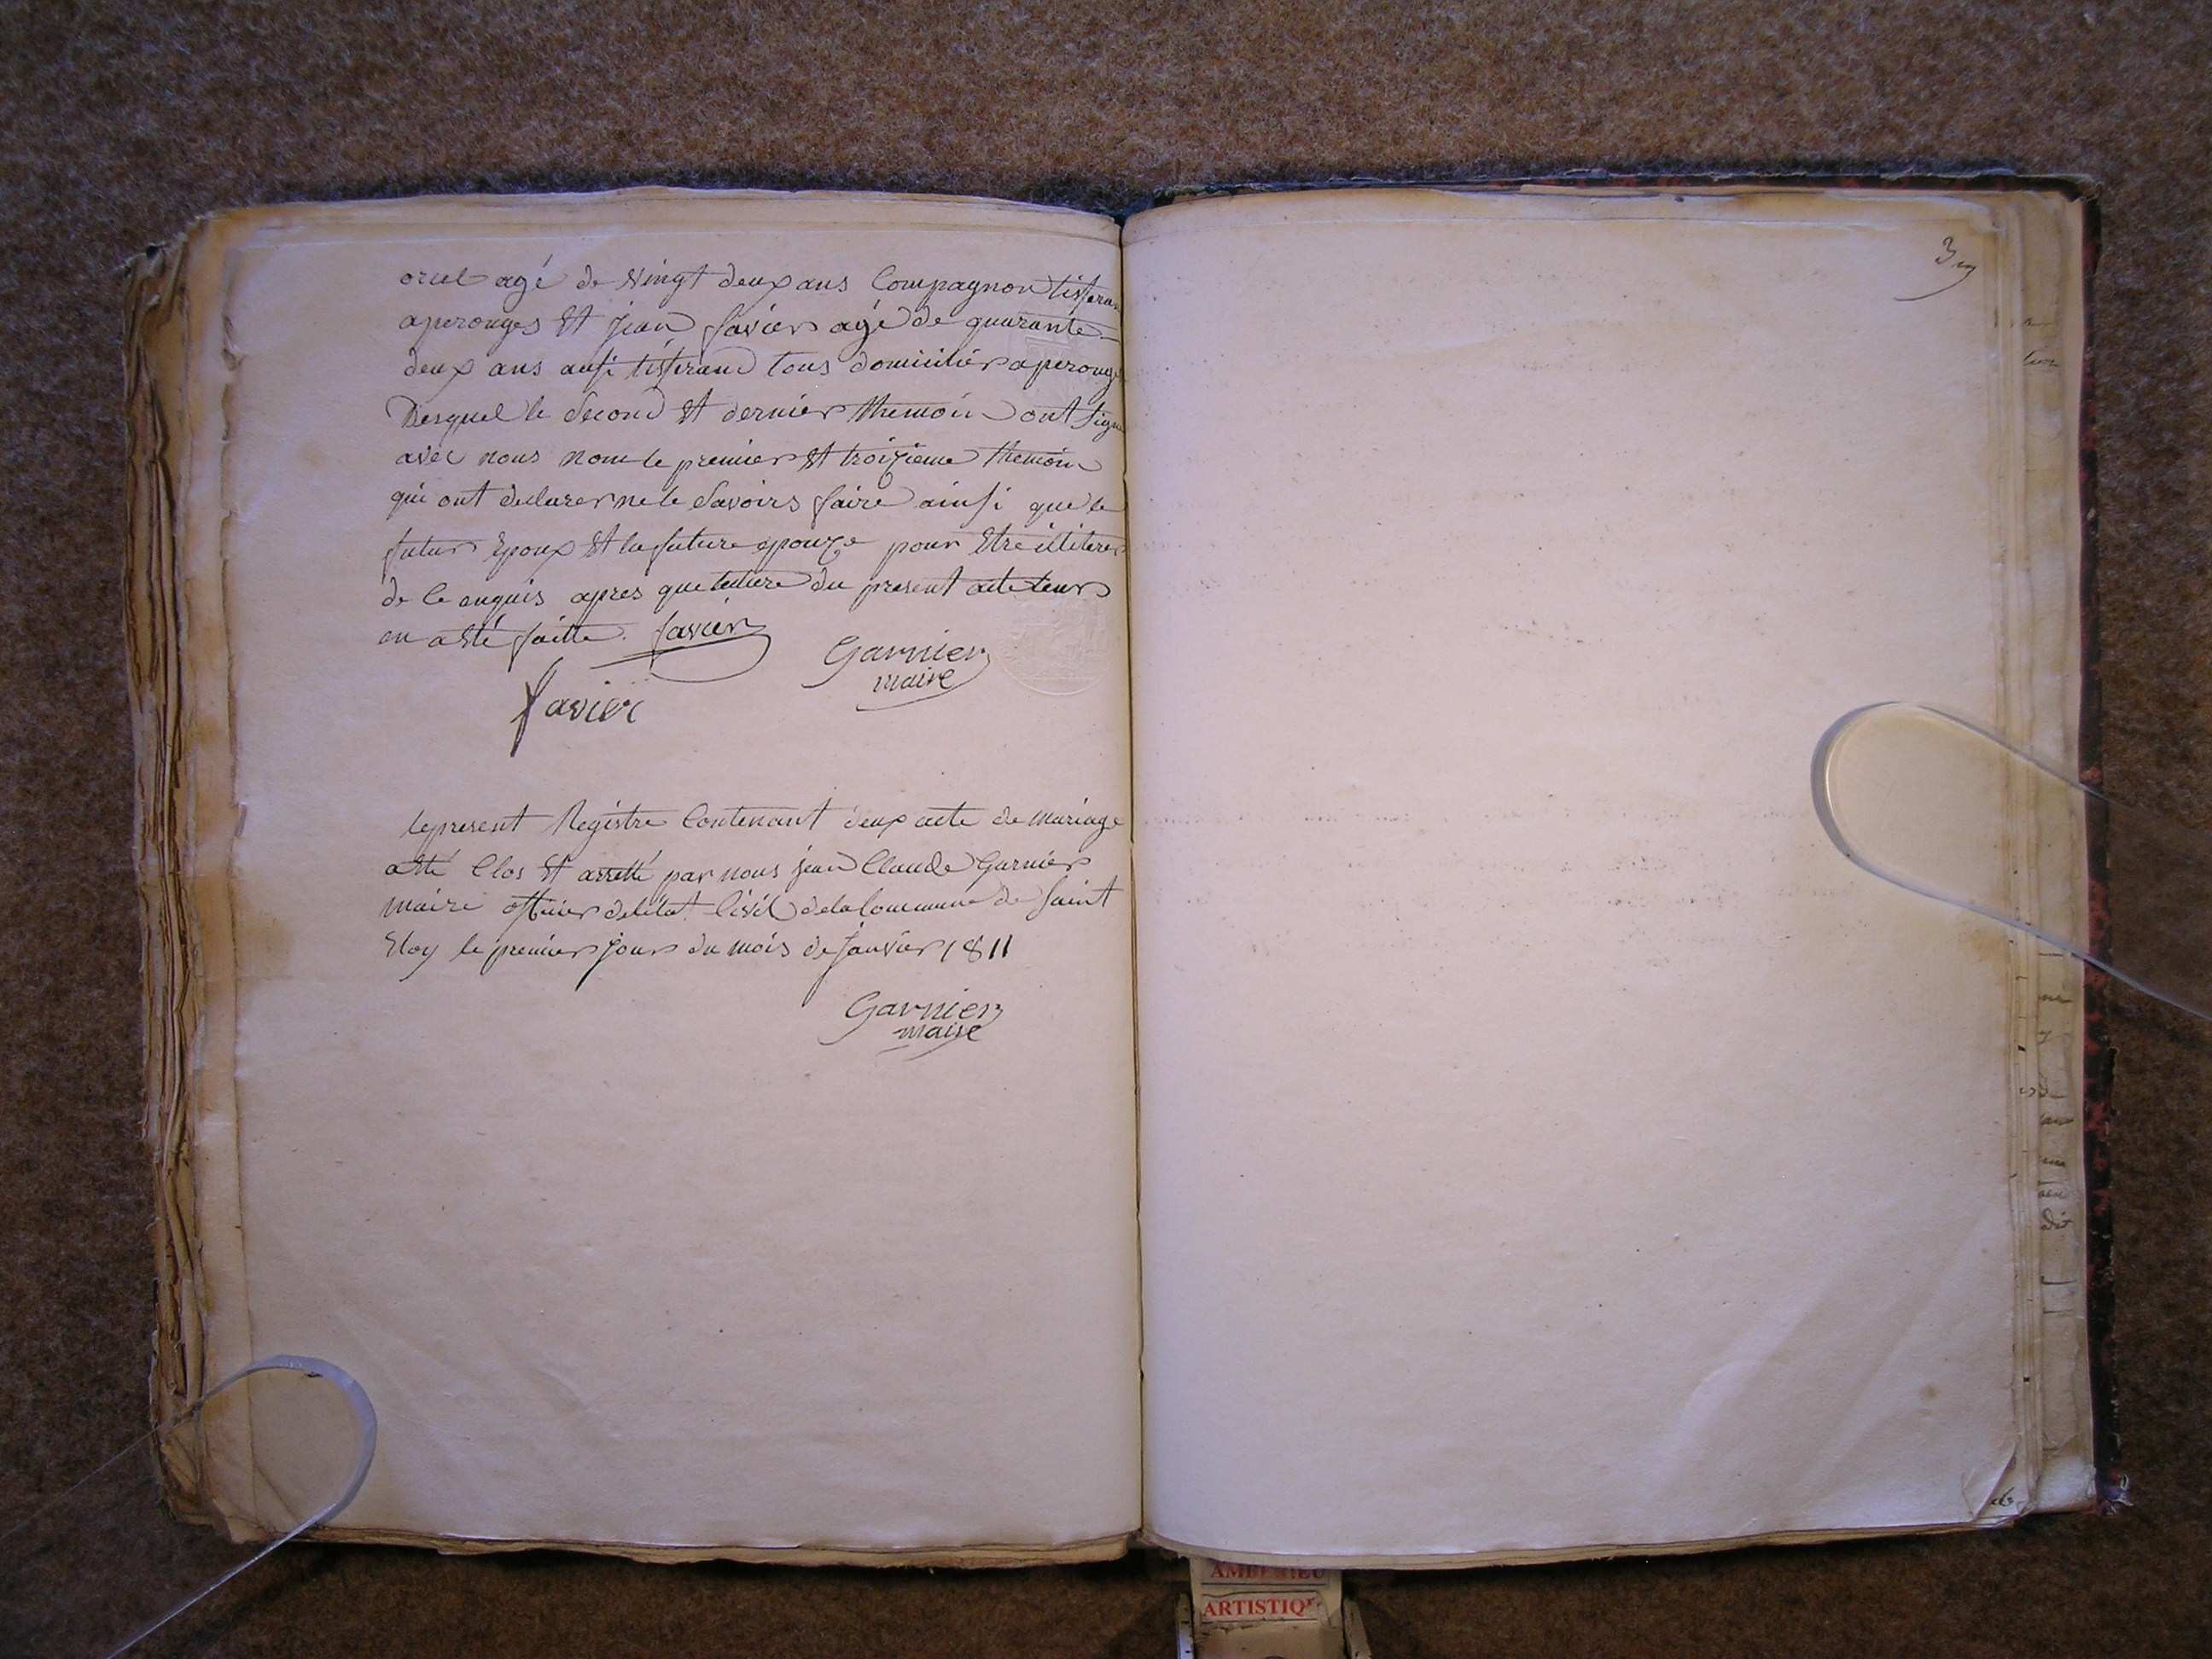 oriel agé de vingt deux ans Compagnon tisseran
aperouges Et jean favier agé de quarante
deux ans aussi tisserand tous domiciliés aperouge
Desquel le Second Et dernier themoin ont Signe
avec nous non le premier Et troizieme themoin
qui ont declarer ne le Savoirs faire ainsi que le
futur Epoux Et la future epouze pour Etre illiteres
de ce enquis apres que lecture du present acte leur
en a Eté faitte. favier
Garnier
maire
favier
le present Registre Contenant deux acte de mariage
a Eté Clos Et arretté par nous jean Claude Garnier
maire officier de létat Civil de la Commune de Saint
Eloy le premier jour du mois de Janvier 1811
Garnier
maire
3
ARTISTIQ